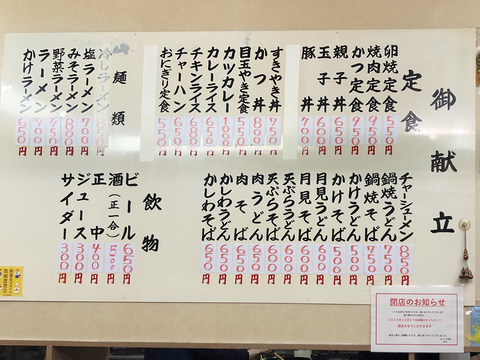 御献立
定食
卵焼定食 550円
焼肉定食 950円
かつ定食 950円
親子丼 650円
玉子丼
豚丼 700円
すきやき丼 750円
かつ丼 800円
目玉やき定食 550円
カツカレー 1000円
カレーライス
チキンライス
チャーハン
おにぎり定食 550円
麺類
冷しラーメン
塩ラーメン 700円
みそラーメン 800円
野菜ラーメン 750円
ラーメン 700円
かけラーメン 650円
チャーシューメン 850円
鍋焼うどん 750円
鍋焼そば 750円
かけうどん 500円
かけそば 500円
月見うどん 550円
月見そば 550円
天ぷらうどん 650円
天ぷらそば 650円
肉うどん 650円
肉そば 650円
かしわうどん 650円
かしわそば 650円
飲物
ビール 650円
酒(正一合) 500円
正中 400円
ジュース 300円
サイダー 300円
閉店のお知らせ